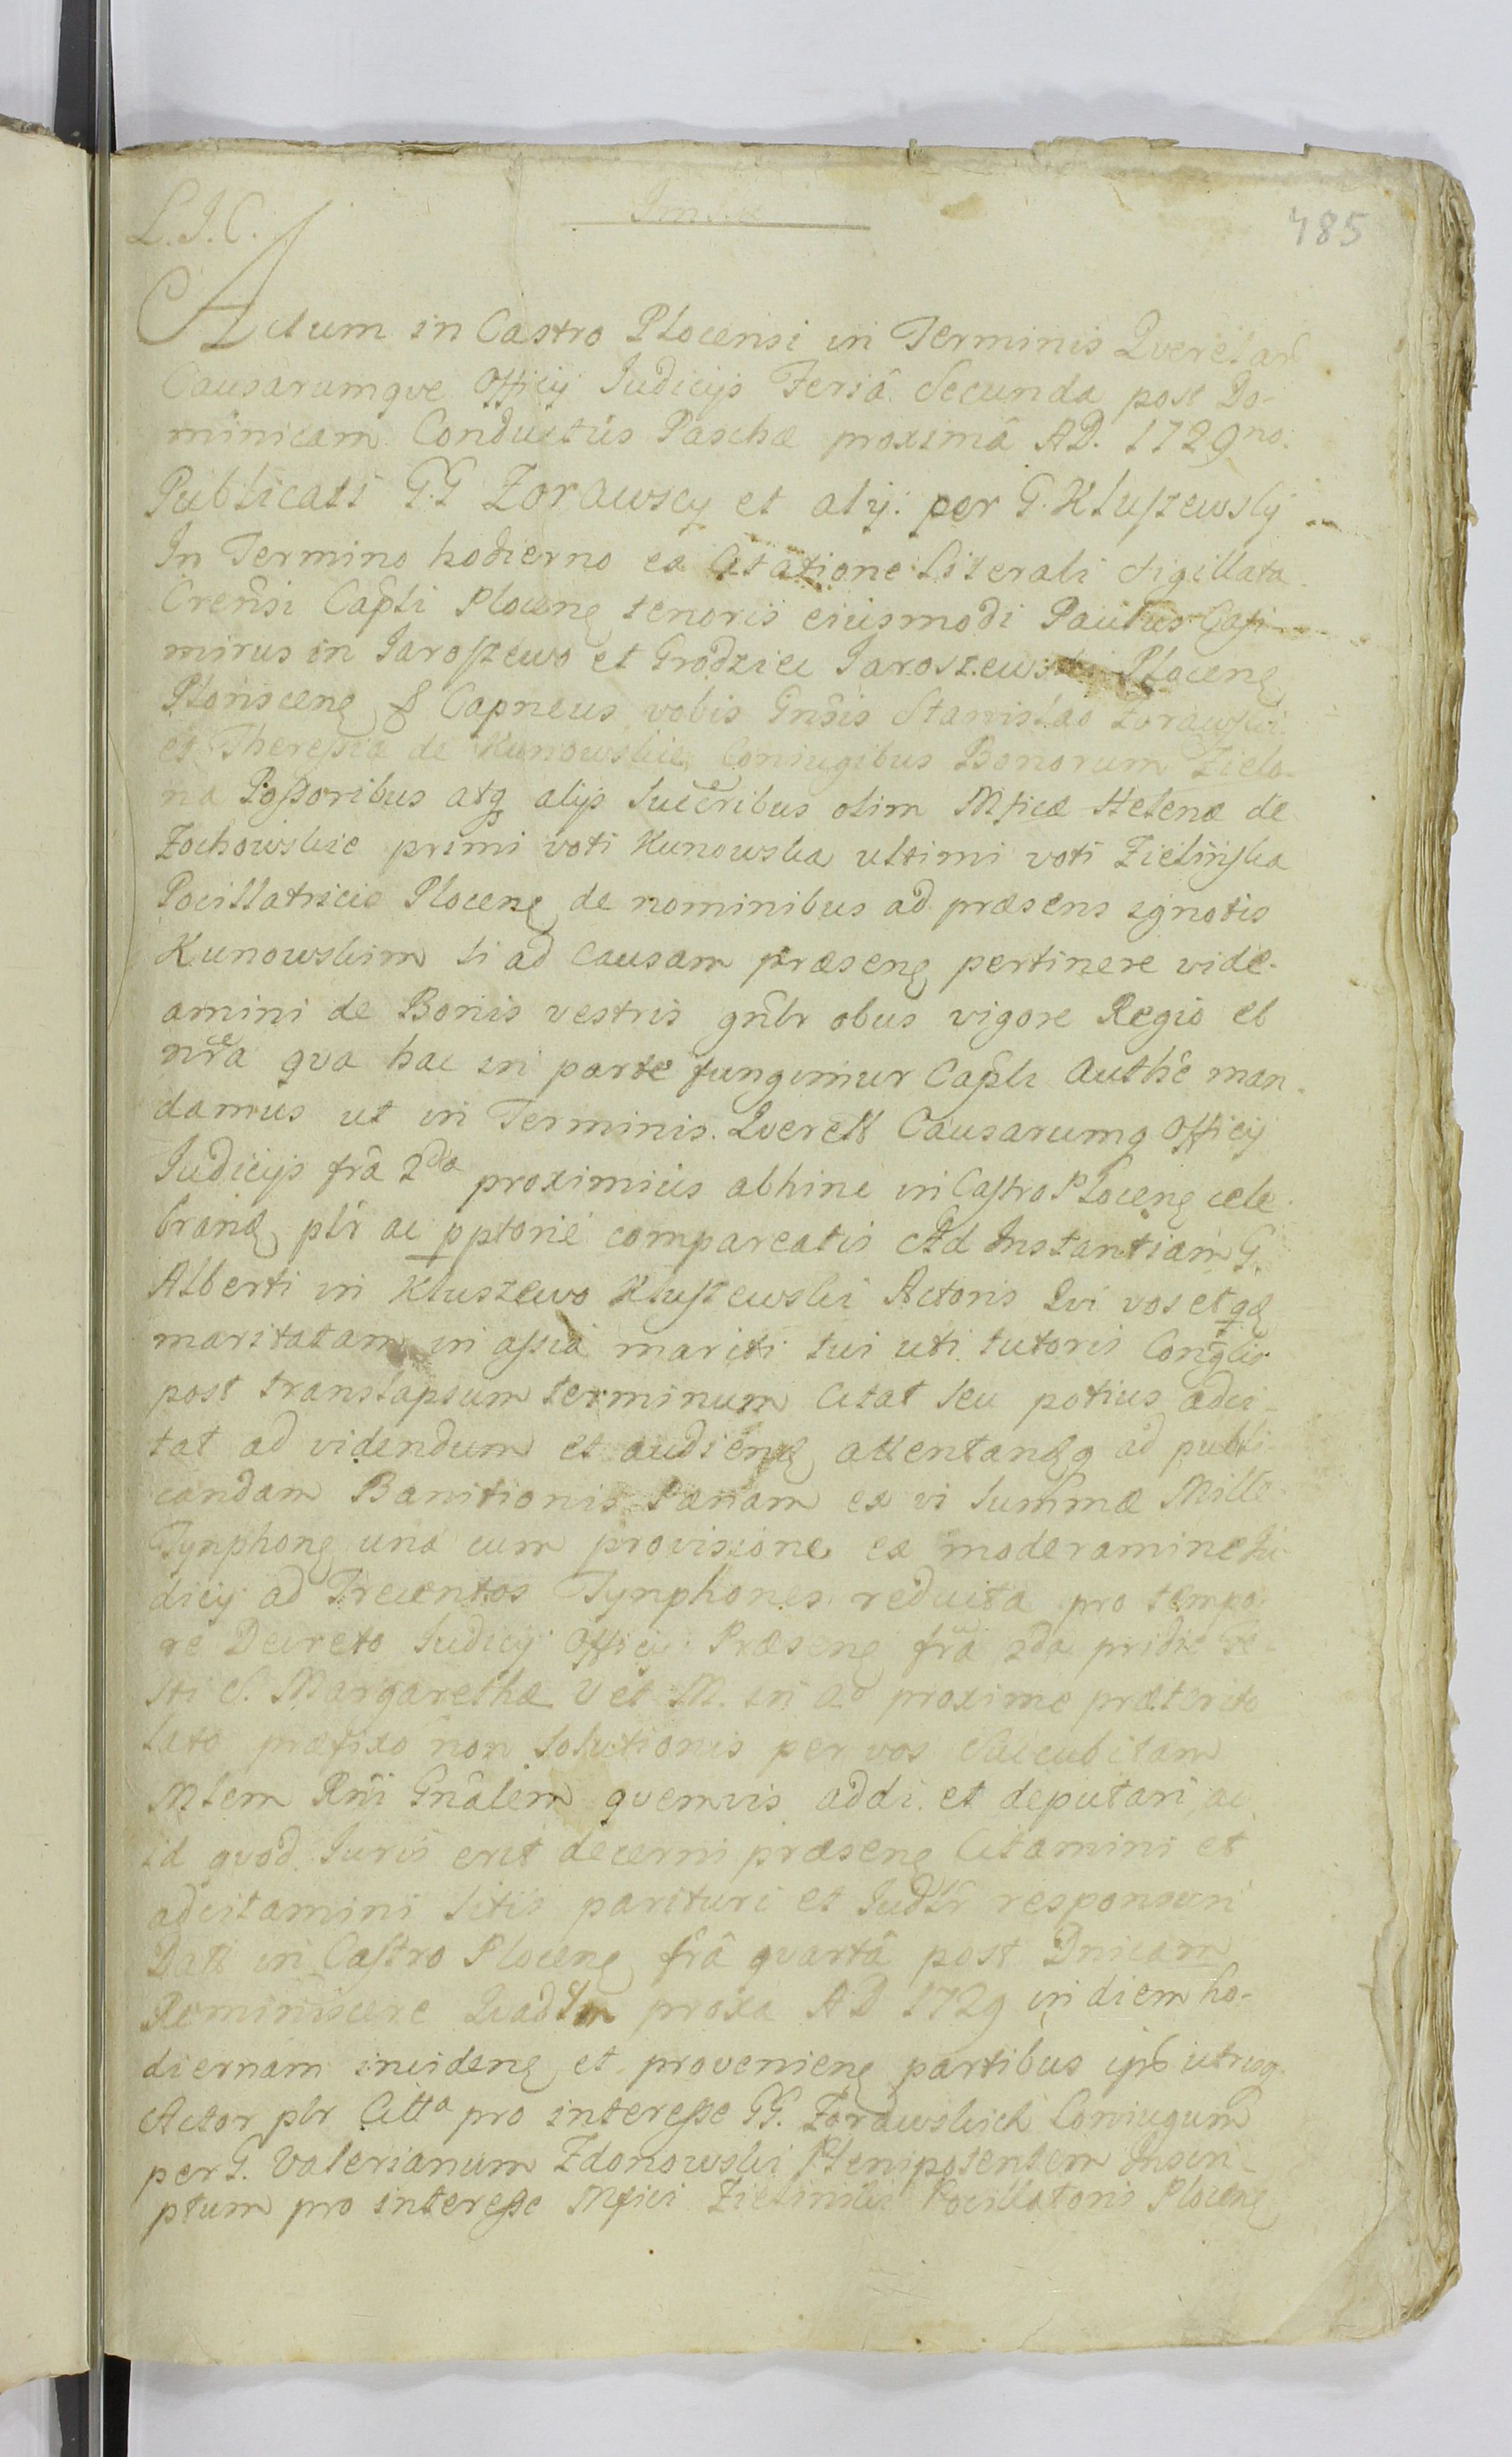 485
L. J. C.
Actum in Castro Plocensi in Terminis Querelar
Causarumqve Officij Iudicijs Feriâ Secunda post Do-
minicam Conductûs Paschæ proximâ AD. 1729no.
Publicati G.G Zorawscy et alij: per G. Kluszewsky
In Termino hodierno ex Citatione Literali Sigillata
Crensi Capli Plocens tenoris eiusmodi Paulus Casi-
mirus in Jaroszewo et Grodziec Jaroszewski Plocens
Plonscens & Capneus vobis Gnsis Stanislao Zorawski
et Theressiæ de Kunowskie Coniugibus Bonorum Zielo-
na Possoribus atq alijs Succeribus olim Mficæ Helenæ de
Zochowskie primi voti Kunowska ultimi voti Zielinska
Pocillatricis Plocens de nominibus ad præsens ignotis
Kunowskim si ad Causam præsens pertinere vide-
amini de Bonis vestris gnlbr obus vigore Regio et
nra qva hac in parte fungimur Capli Authe man-
damus ut in Terminis Querell Causarumq Officij
Iudicijs frâ 2da proximius abhinc in Castro Plocens cele-
brand plr ac pptorie compareatis Ad Instantiam G.
Alberti in Kluszewo Kluszewski Actoris Qvi vos et qd
maritatam in assia mariti sui uti tutoris Conglis
post translapsum terminum Citat seu potius adci-
tat ad videndum et audiend attentandq ad publi-
candam Banitionis Pænam ex vi Summæ Mille
Tynphons una cum provisione ex moderamine Iu-
dicij ad Trecentos Tynphones reducta pro tempo-
re Decreto Iudicij Officij Præsens frâ 2da pridie Fe-
sti S. Margarethæ V et M. in ad proxime præterito
lato præfixo non Solutionis per vos Succubitam
Mtem Rni Gnâlem quemvis addi et deputari ac
id qvod Iuris erit decerni præsens Citamini et
adcitamini Sitis parituri et Iudlr responsuri
Datt in Castro Plocens frâ qvartâ post Dnicam
Reminiscere proxa AD 1729 in diem ho-
diernam incidens et proveniens partibus ipb utrisq
Actor plr Citta pro interesse GG. Zorawskich Coniugum
per G. Valerianum Zdonowski Plenipotentem Inscri-
ptum pro interesse Mfici Zielinski Pocillatoris Plocens